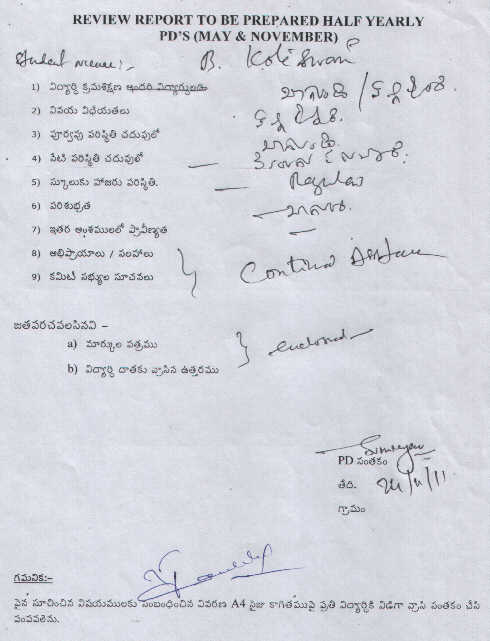 REVIEW REPORT TO BE PREPARED HALF YEARLY
PD'S (MAY & NOVEMBER)
Student name:- B. Koteswari
1) విద్యార్థి క్రమశిక్షణ అందరి విద్యార్థులకు బాగుంది /
2) వినయ విధేయతలు
3) పూర్వపు పరిస్థితి చదువులో బాగుంది.
4) నేటి పరిస్థితి చదువులో —
5) స్కూలుకు హాజరు పరిస్థితి. — Regular
6) పరిశుభ్రత — బాగుంది.
7) ఇతర అంశములలో ప్రావీణ్యత —
8) అభిప్రాయాలు / సలహాలు
9) కమిటీ సభ్యుల సూచనలు } Continue
జతపరచవలసినవి –
a) మార్కుల పత్రము
b) విద్యార్థి దాతకు వ్రాసిన ఉత్తరము } enclosed
PD సంతకం
తేది. 24/11/11
గ్రామం
గమనిక:-
పైన సూచించిన విషయములకు సంబంధించిన వివరణ A4 సైజు కాగితముపై ప్రతి విద్యార్థికి విడిగా వ్రాసి సంతకం చేసి
పంపవలెను.